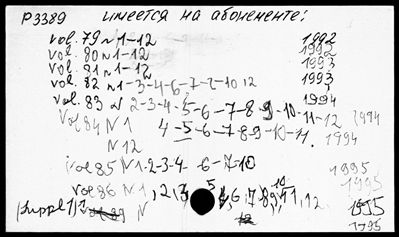 P3389 имеется на абонементе:
vol. 79 n 1-12 1992
vol. 80 n 1-12 1992
vol. 81 n 1-12 1993
vol. 82 n 1-3-4-6-7-8-10 12 1993
vol. 83 n 2-3-4-5-6-7-8-9-10-11-12 1994
vol 84 N 1 4-5-6-7-8-9-10-11. 1994
N 12 1994
vol 85 N 1-2-3-4 6-7-10 1995
vol 86 N 1, 2, 3 5 6, 7 8 9 10 11, 12. 1995
suppl N 1995
1995